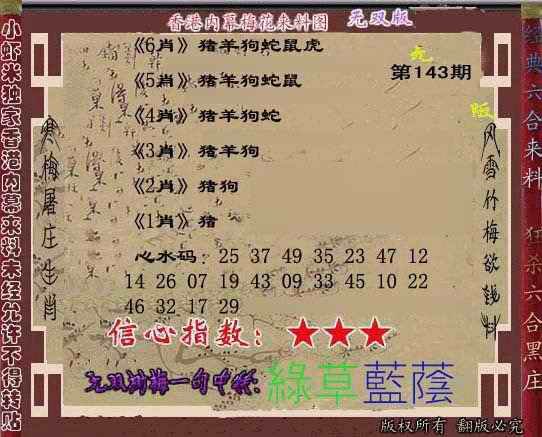 香港内幕梅花来料图 无双版
小虾米独家香港内幕来料未经允许不得转贴
经典六合来料 狂杀六合黑庄
寒梅屠庄生肖
风雪竹梅欲钱料
无
版
第143期
《6肖》猪羊狗蛇鼠虎
《5肖》猪羊狗蛇鼠
《4肖》猪羊狗蛇
《3肖》猪羊狗
《2肖》猪狗
《1肖》猪
心水码：25 37 49 35 23 47 12
14 26 07 19 43 09 33 45 10 22
46 32 17 29
信心指数：★★★
无双浏梅一句中特:綠草藍蔭
版权所有 翻版必究